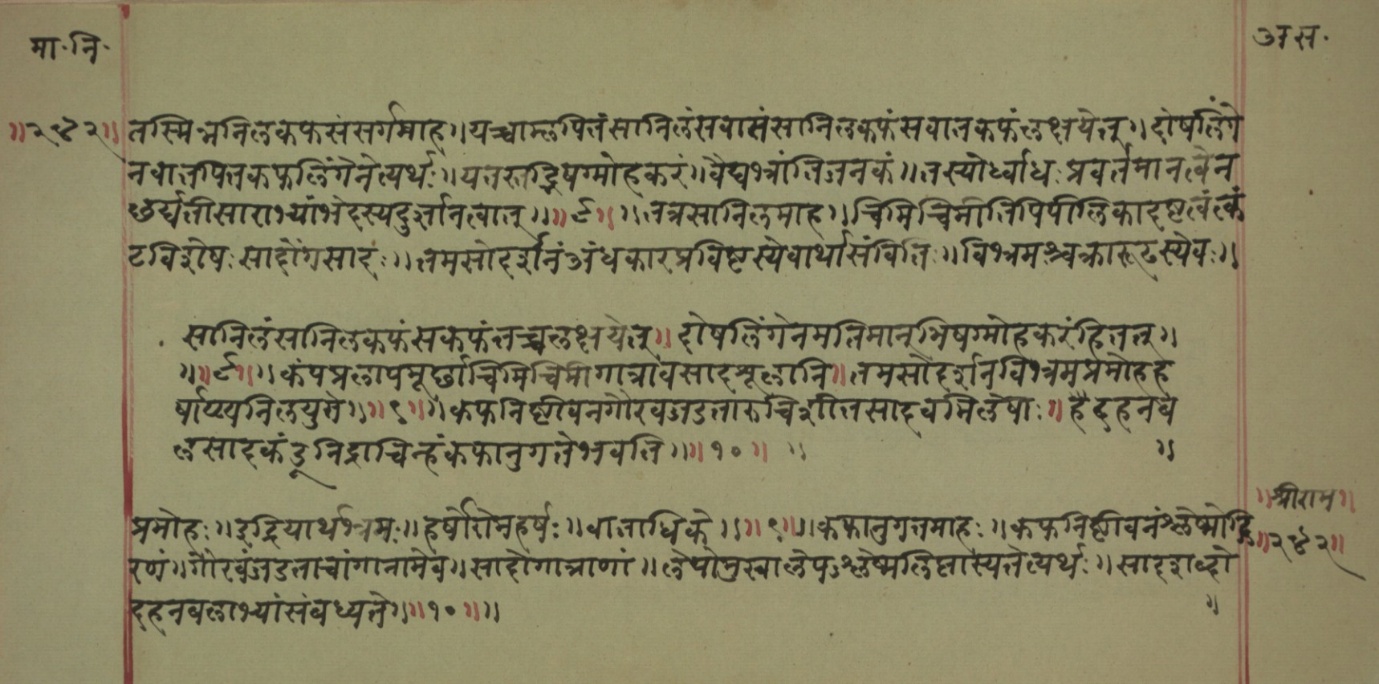 मा·नि·
अस·
॥२४२॥ तस्मिन्ननिलकफसंसर्गमाह॥यच्चाम्लपित्तंसानिलंसवातंसानिलकफंसवातकफंलक्षयेत्॥दोषलिंगे
नवातपित्तकफलिंगेनेत्यर्थः॥यतस्तद्भिषग्मोहकरं॥वैद्यभ्रांतिजनकं॥तस्योर्ध्वाधःप्रवर्तमानत्वेन
छर्द्यतीसाराभ्यांभेदस्यदुर्ज्ञानत्वात्॥॥८॥॥तत्रसानिलमाह॥चिमिचिमीतिपिपीलिकादष्टत्वंत्कं
टविशेषःसादोंगसादः॥तमसोदर्शनंअंधकारप्रविष्टस्येवार्थासंवित्तिः॥विभ्रमश्चक्रारूढस्येवः॥
सानिलंसानिलकफंसकफंतच्चलक्षयेत्॥दोषलिंगेनमतिमान्भिषग्मोहकरंहितत्॥
॥॥८॥॥कंपप्रलापमूर्छाचिमिचिमीगात्रावसादशूलानि॥तमसोदर्शनविभ्रमप्रमोहह
र्षाण्यनिलयुते॥॥९॥॥कफनिष्ठीवनगौरवजडतारुचिशीतसादवमिलेपाः॥दैदहनब
लसादकंडूनिद्राचिन्हंकफानुगतेभवति॥॥१०॥॥
॥
प्रमोहः॥इंद्रियार्थभ्रमः॥हर्षोरोमहर्षः॥वाताधिके॥॥९॥॥कफानुगतमाहः॥कफनिष्ठीवनंश्लेष्मोद्गि
रणं॥गौरवंजडताचांगानामेव॥सादोगात्राणां॥लेपोमुखालेपःश्लेष्मलिप्तास्यतेत्यर्थः॥सादशब्दो
दहनबलाभ्यांसंबध्यते॥॥१०॥॥
॥
॥श्रीराम॥
॥२४२॥